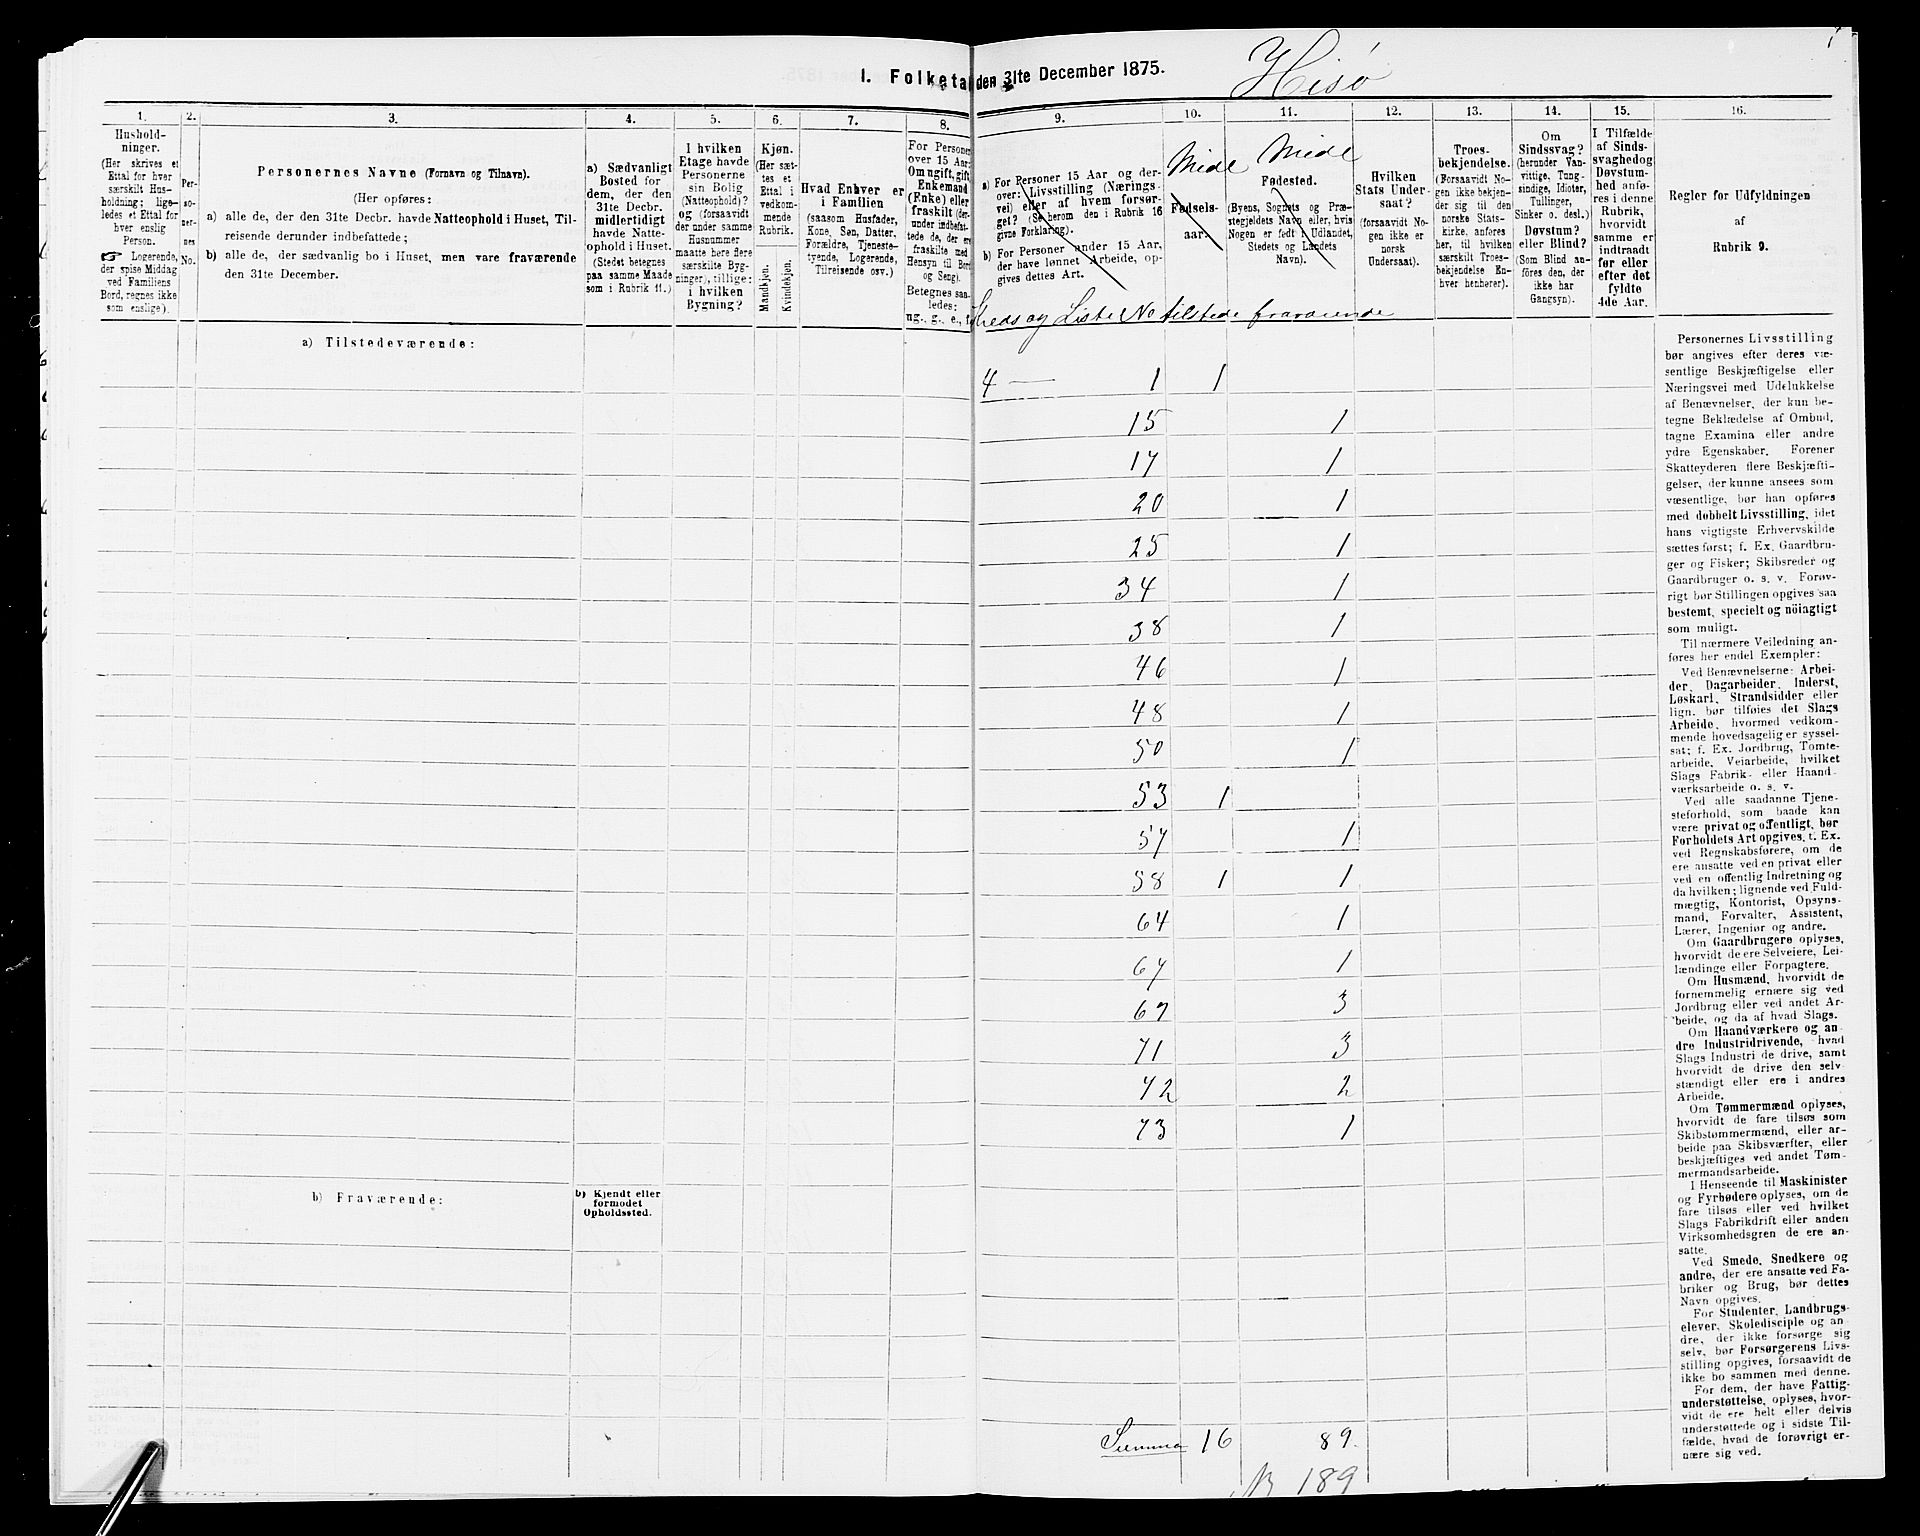 1
I. Folketal den 31te December 1875.
Hisö
1.
Hushold-
ninger.
(Her skrives et
Ettal for hver
særskilt Hus-
holdning; lige-
ledes et Ettal for
hver enslig
Person.
☞ Logerende,
der spise Middag
ved Familiens
Bord, regnes ikke
som enslige).
2.
Per-
so-
ner-
nes
No.
3.
Personernes Navne (Fornavn og Tilnavn).
(Her opføres:
a) alle de, der den 31te Decbr. havde Natteophold i Huset, Til-
reisende derunder indbefattede;
b) alle de, der sædvanlig bo i Huset, men vare fraværende
den 31te December.
4.
a) Sædvanligt
Bosted for
dem, der den
31te Decbr.
midlertidigt
havde Natte-
ophold i Huset.
(Stedet betegnes
paa samme Maade
som i Rubrik 11.)
5.
I hvilken
Etage havde
Personerne
sin Bolig
(Natteophold)?
og (forsaavidt
der under samme
Husnummer
maatte here flere
særskilte Byg-
ninger), tillige:
i hvilken
Bygning?
6.
Kjøn.
(Her sæt-
tes et
Ettal i
vedkom-
mende
Rubrik.
Mandkjøn.
Kvindekjøn.
7.
Hvad Enhver er
i Familien
(saasom Husfader,
Kone, Søn, Datter,
Forældre, Tjeneste-
tyende, Logerende,
Tilreisende osv.)
8.
For Personer
over 15 Aar:
Om ugift, gift,
Enkemand
(Enke) eller
fraskilt (der-
under indbefat-
tede de, der ere
fraskilte med
Hensyn til Bord
og Seng).
Betegnes saa-
ledes:
ug., g., e., f.
9.
a) For Personer 15 Aar og der-
over: Livsstilling (Nærings-
vei) eller af hvem forsør-
get? (Se herom den i Rubrik 16
givne Forklaring).
b) For Personer under 15 Aar,
der have lønnet Arbeide, op-
gives dettes Art.
10.
Midl
Fødsels-
aar.
11.
Midl
Fødested.
(Byens, Sognets og Præ-
stegjeldets Navn eller, hvis
Nogen er født i Udlandet,
Stedets og Landets
Navn).
12.
Hvilken
Stats Under-
saat?
(forsaavidt No-
gen ikke er
norsk
Undersaat).
13.
Troes-
bekjendelse.
(Forsaavidt No-
gen ikke bekjen-
der sig til den
norske Stats-
kirke, anføres
her, til hvilken
særskilt Troes-
bekjendelse En-
hver henhører).
14.
Om
Sindssvag?
(herunder Van-
vittige, Tung-
sindige, Idioter,
Tullinger,
Sinker o. desl.)
Døvstum?
eller Blind?
(Som Blind an-
føres den, der
ikke har
Gangsyn).
15.
I Tilfælde
af Sinds-
svaghed og
Døvstum-
hed anfø-
res i denne
Rubrik,
hvorvidt
samme er
indtraadt
før eller
efter det
fyldte
4de Aar.
16.
Regler for Udfyldningen
af
Rubrik 9.
Kreds og Liste No tilstede fraværende
a) Tilstedeværende:
4 — 1 1
15 1
17 1
20 1
25 1
34 1
38 1
46 1
48 1
50 1
53 1
57 1
58 1 1
64 1
67 1
69 3
71 3
72 2
73 1
b) Fraværende:
b) Kjendt eller
formodet
Opholdssted.
Summa 16 89.
189
Personernes Livsstilling
bør angives efter deres væ-
sentlige Beskjæftigelse eller
Næringsvei med Udelukkelse
af Benævnelser, der kun be-
tegne Beklædelse af Ombud,
tagne Examina eller andre
ydre Egenskaber. Forener
Skatteyderen flere Beskjæfti-
gelser, der kunne ansees som
væsentlige, bør han opføres
med dobbelt Livsstilling, idet
hans vigtigste Erhvervskilde
sættes først; f. Ex. Gaardbru-
ger og Fisker; Skibsreder og
Gaardbruger o. s. v. Forøv-
rigt bør Stillingen opgives saa
bestemt, specielt og nöiagtigt
som muligt.
Til nærmere Veiledning an-
føres her endel Exempler:
Ved Benævnelserne: Arbei-
der, Dagarbeider, Inderst,
Løskarl, Strandsidder eller
lign. bør tilføies det Slags
Arbeide, hvormed vedkom-
mende hovedsagelig er syssel-
sat; f. Ex. Jordbrug, Tomte-
arbeide, Veiarbeide, hvilket
Slags Fabrik- eller Haand-
værksarbeide o. s. v.
Ved alle saadanne Tjene-
steforhold, som baade kan
være privat og offentligt, bør
Forholdets Art opgives, t. Ex.
ved Regnskabsførere, om de
ere ansatte ved en privat eller
ved en offentlig Indretning og
da hvilken; lignende ved Fuld-
mægtig, Kontorist, Opsyns-
mand, Forvalter, Assistent,
Lærer, Ingeniør og andre.
Om Gaardbrugere oplyses,
hvorvidt de ere Selveiere, Lei-
lændinge eller Forpagtere.
Om Husmænd, hvorvidt de
fornemmelig ernære sig ved
Jordbrug eller ved andet Ar-
beide, og da af hvad Slags.
Om Haandværkere og an-
dre Industridrivende, hvad
Slags Industri de drive, samt
hvorvidt de drive den selv-
stændigt eller ere i andres
Arbeide.
Om Tømmermænd oplyses,
hvorvidt de fare tilsøs som
Skibstømmermænd, eller ar-
beide paa Skibsværfter, eller
beskjæftiges ved andet Tøm-
mermandsarbeide.
I Henseende til Maskinister
og Fyrbødere oplyses, om de
fare tilsøs eller ved hvilket
Slags Fabrikdrift eller anden
Virksomhedsgren de ere an-
satte.
Ved Smede, Snedkere og
andre, der ere ansatte ved Fa-
briker og Brug, bør dettes
Navn opgives.
For Studenter, Landbrugs-
elever, Skoledisciple og an-
dre, der ikke forsørge sig
selv, bør Forsørgerens Livs-
stilling opgives, forsaavidt de
ikke bo sammen med denne.
For dem, der have Fattig-
understøttelse, oplyses, hvor-
vidt de ere helt eller delvis
understøttede og i sidste Til-
fælde, hvad de forøvrigt er-
nære sig ved.